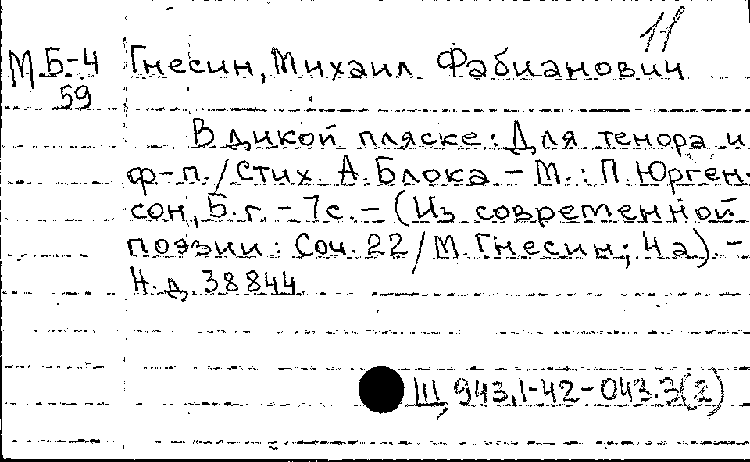 11
М Б-4 Гнесин, Михаил Фабианович
59
В дикой пляске: Для тенора и
ф-п./Стих. А. Блока. – М.: П. Юрген-
сон, Б.г. – 7с. – (Из современной
поэзии: Соч. 22/М. Гнесин; 4а). –
Н.д. 38844
Щ 943.1-42-043.3(2)